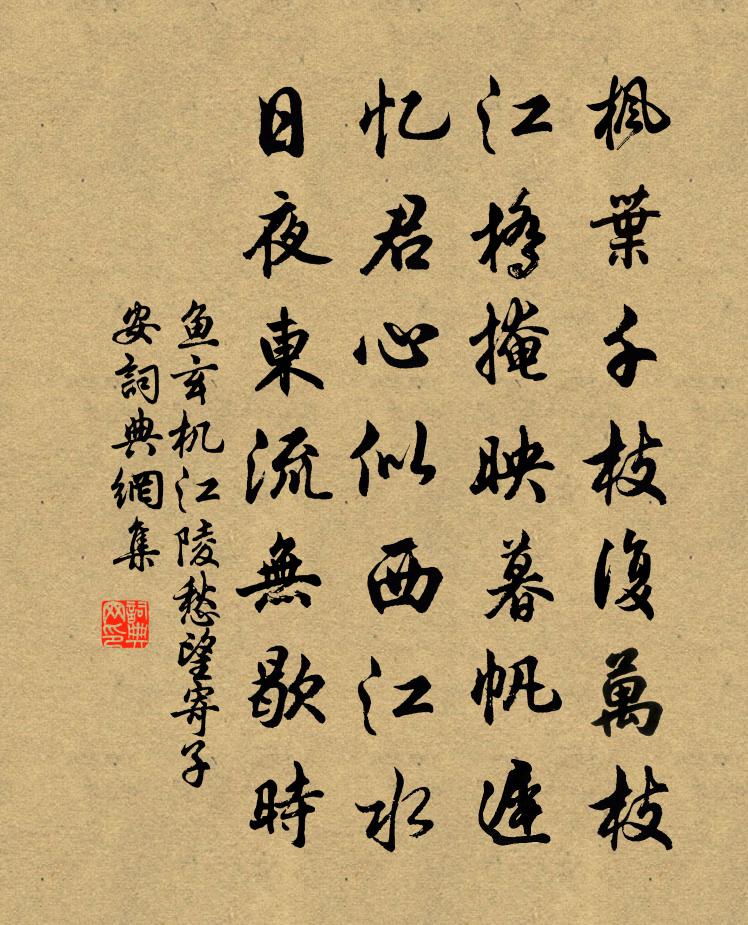 枫葉千枝復萬枝
江橋掩映暮帆遲
忆君心似西江水
日夜東流無歇時
鱼玄机江陵愁望寄子
安詞典網集
詞典网印